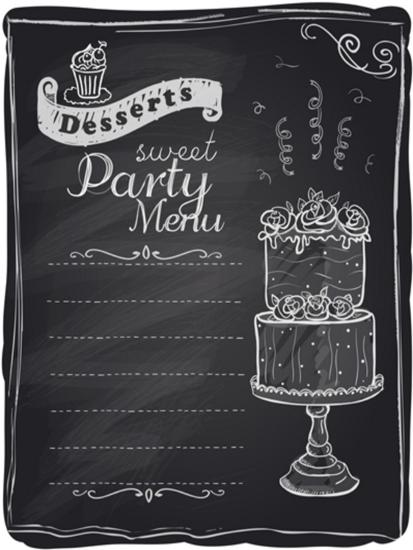 Desserts
sweet
Party
Menu